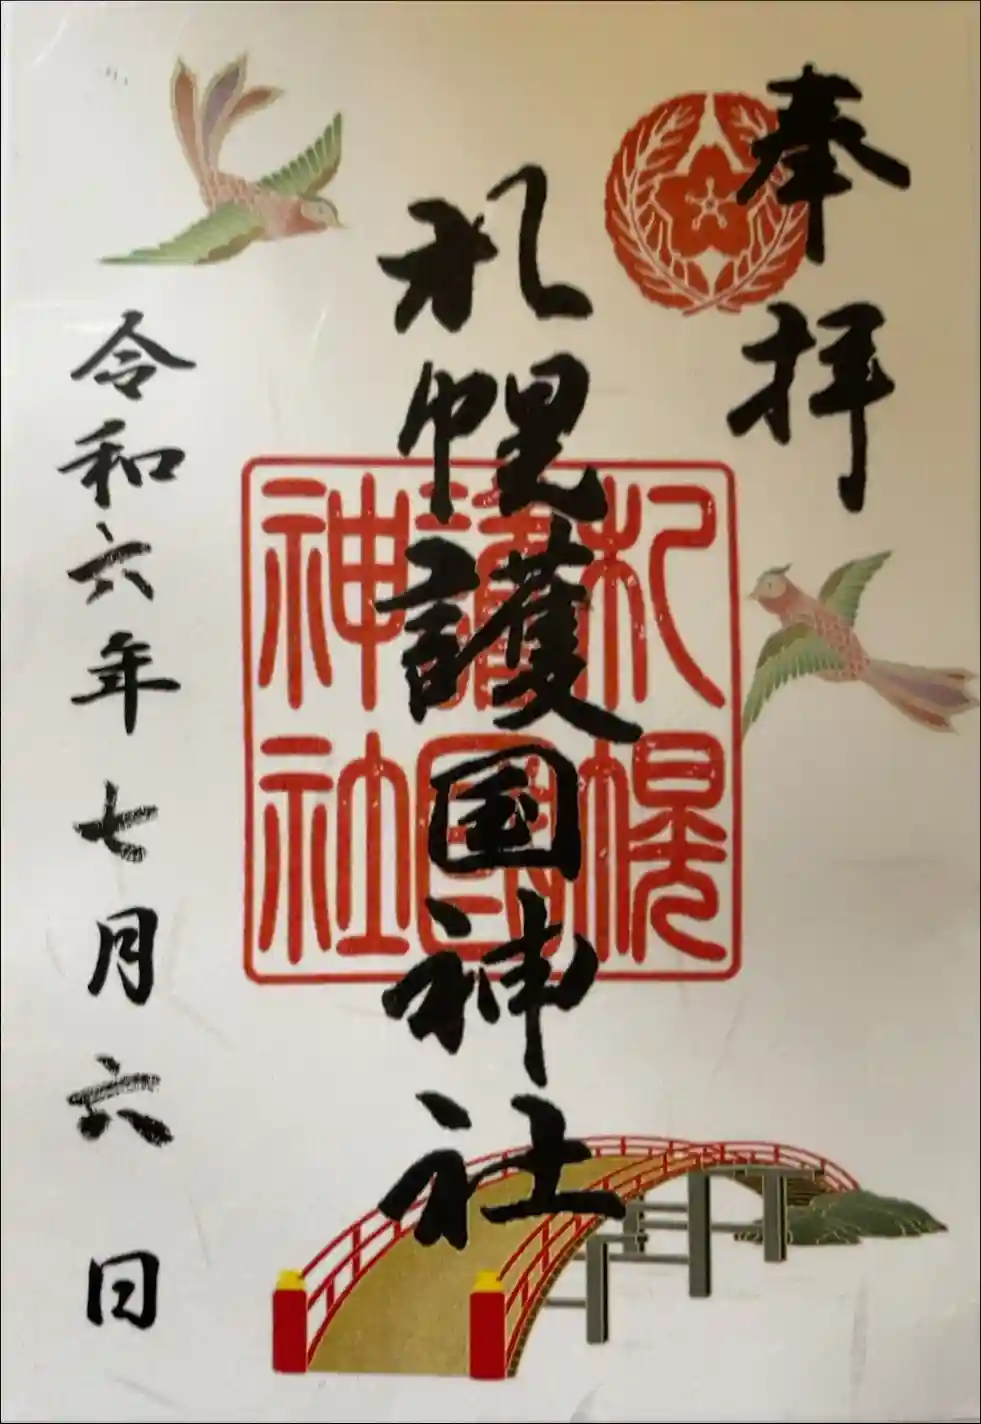 奉拝
札幌護国神社
札幌
護國
神社
令和六年七月六日